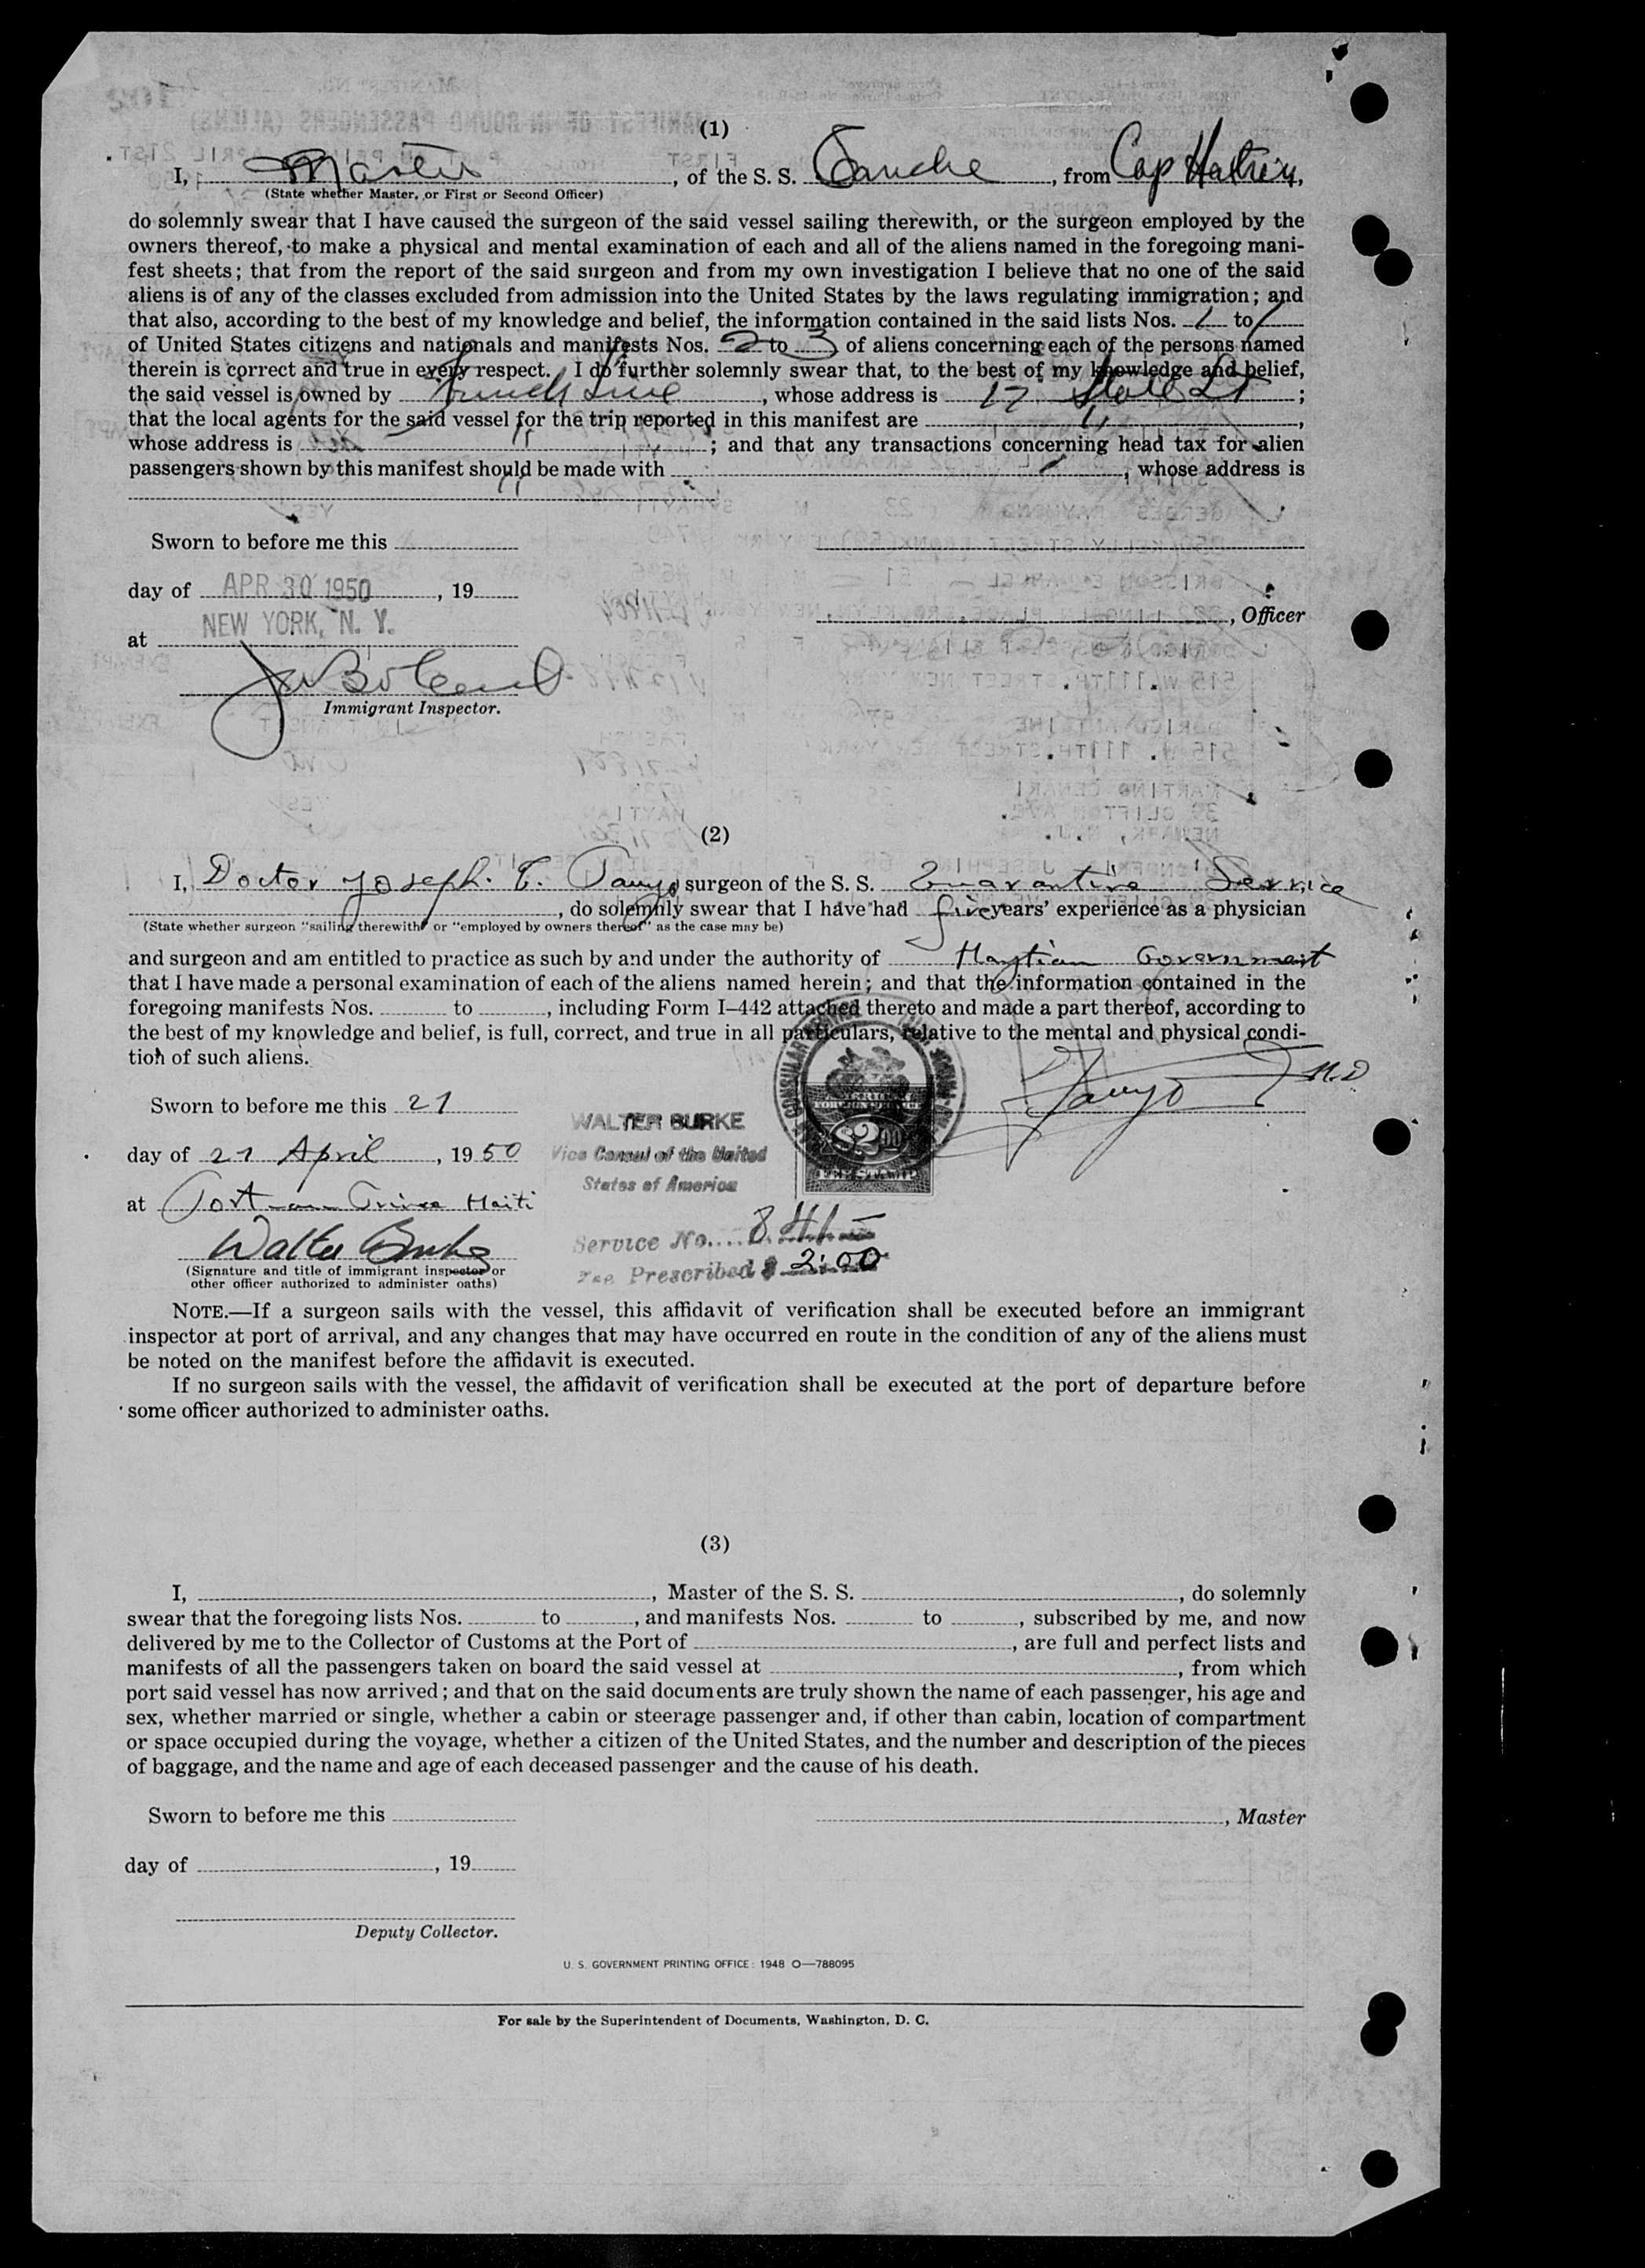 (1)
I, Master, of the S. S. Sanche, from Cap Hatien,
(State whether Master, or First or Second Officer)
do solemnly swear that I have caused the surgeon of the said vessel sailing therewith, or the surgeon employed by the
owners thereof, to make a physical and mental examination of each and all of the aliens named in the foregoing mani-
fest sheets; that from the report of the said surgeon and from my own investigation I believe that no one of the said
aliens is of any of the classes excluded from admission into the United States by the laws regulating immigration; and
that also, according to the best of my knowledge and belief, the information contained in the said lists Nos. 1 to 1
of United States citizens and nationals and manifests Nos. 2 to 3 of aliens concerning each of the persons named
therein is correct and true in every respect. I do further solemnly swear that, to the best of my knowledge and belief,
the said vessel is owned by French Line, whose address is 17 State St;
that the local agents for the said vessel for the trip reported in this manifest are ",
whose address is "; and that any transactions concerning head tax for alien
passengers shown by this manifest should be made with, whose address is
"
Sworn to before me this
day of APR 30 1950, 19
, Officer
at NEW YORK, N. Y.
Immigrant Inspector.
(2)
I, Doctor Joseph. surgeon of the S. S. Quarantine Service
, do solemnly swear that I have had five years' experience as a physician
(State whether surgeon "sailing therewith" or "employed by owners thereof" as the case may be)
and surgeon and am entitled to practice as such by and under the authority of Haytian Government
that I have made a personal examination of each of the aliens named herein; and that the information contained in the
foregoing manifests Nos. to , including Form I–442 attached thereto and made a part thereof, according to
the best of my knowledge and belief, is full, correct, and true in all particulars, relative to the mental and physical condi-
tion of such aliens.
M.D
Sworn to before me this 21
WALTER BURKE
$2.00
day of 21 April, 1950
Vice Consul of the United
FEE STAMP
States of America
at Port-au-Prince Haiti
Service No. 841
Walter Burke
Fee Prescribed $ 2.00
(Signature and title of immigrant inspector or
other officer authorized to administer oaths)
NOTE.—If a surgeon sails with the vessel, this affidavit of verification shall be executed before an immigrant
inspector at port of arrival, and any changes that may have occurred en route in the condition of any of the aliens must
be noted on the manifest before the affidavit is executed.
If no surgeon sails with the vessel, the affidavit of verification shall be executed at the port of departure before
some officer authorized to administer oaths.
(3)
I, , Master of the S. S. , do solemnly
swear that the foregoing lists Nos. to , and manifests Nos. to , subscribed by me, and now
delivered by me to the Collector of Customs at the Port of , are full and perfect lists and
manifests of all the passengers taken on board the said vessel at , from which
port said vessel has now arrived; and that on the said documents are truly shown the name of each passenger, his age and
sex, whether married or single, whether a cabin or steerage passenger and, if other than cabin, location of compartment
or space occupied during the voyage, whether a citizen of the United States, and the number and description of the pieces
of baggage, and the name and age of each deceased passenger and the cause of his death.
Sworn to before me this
, Master
day of , 19
Deputy Collector.
U. S. GOVERNMENT PRINTING OFFICE: 1948 O—788095
For sale by the Superintendent of Documents, Washington, D. C.